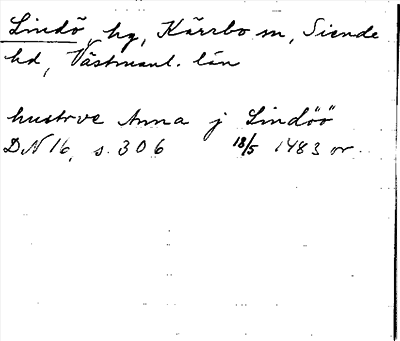 Lindö, hg, Kärrbo sn, Siende
hd, Västmanl. län
hustrve Anna j Lindöö
DN 16, s. 306 18/5 1483 or.